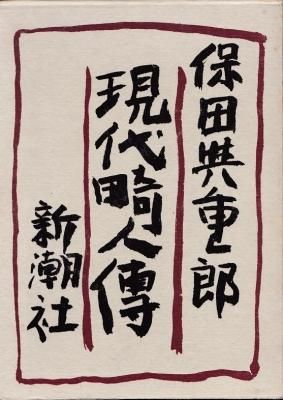 保田與重郎
現代畸人傳
新潮社